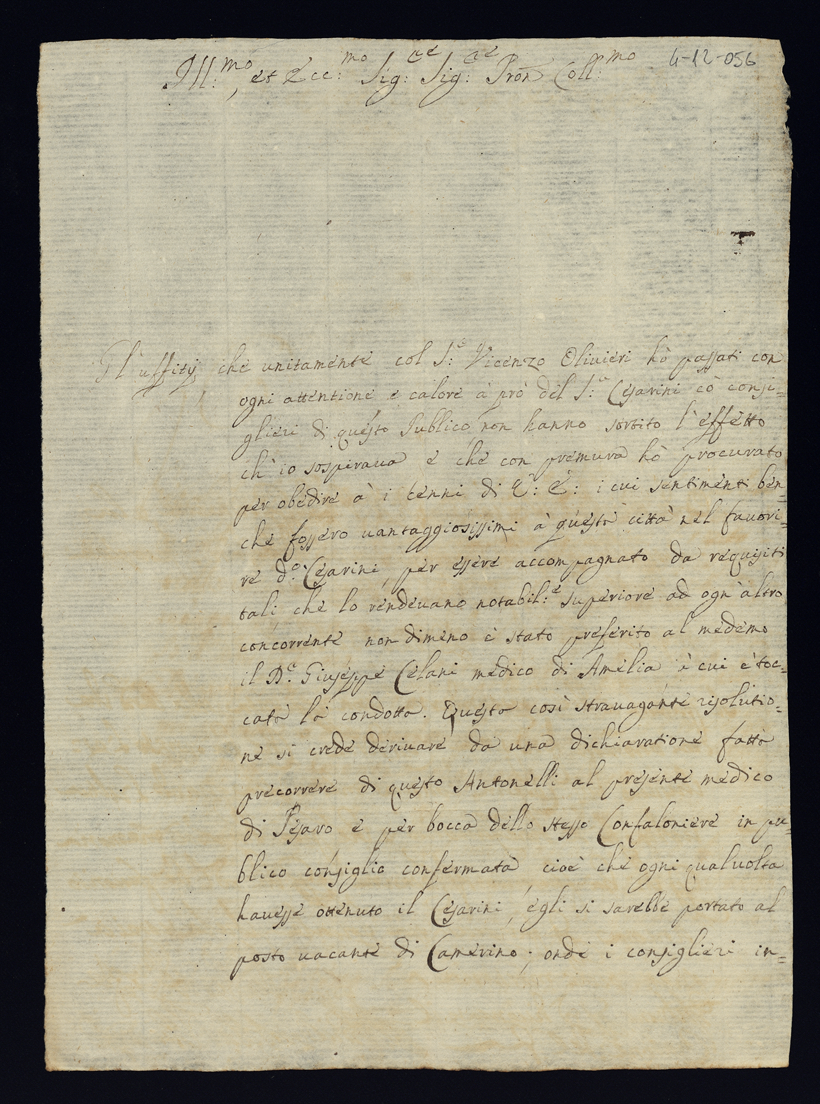 Ill:mo, et Ecc:mo Sig:re Sig:re Pron Coll:mo
4-12-056
Gl'uffitij, che unitamente col S:r Vicenzo Olivieri hò passati con
ogni attentione e calore à prò del S:r Cesarini cò consi=
glieri di questo Publico, non hanno sortito l'effetto
ch'io sospiraua e che con premura hò procurato
per obedire à i cenni di E: E: i cui sentimenti ben=
che fossero uantaggiosissimi à questa città nel fauori=
re d:o Cesarini, per essere accompagnato da requisiti
tali che lo rendeuano notabil:e superiore ad ogn'altro
concorrente non dimeno è stato preferito al medemo
il D:r Giuseppe Celani medico di Amelia à cui è toc=
cata la condotta. Questa così strauagante risolutio=
ne si crede deriuare da una dichiaratione fatta
precorrere di questo Antonelli al presente medico
di Pesaro e per bocca dello stesso Confaloniere in pu=
blico consiglio confermata cioè che ogni qual uolta
hauesse ottenuto il Cesarini, egli si sarebbe portato al
posto uacante di Camerino; onde i consiglieri in=